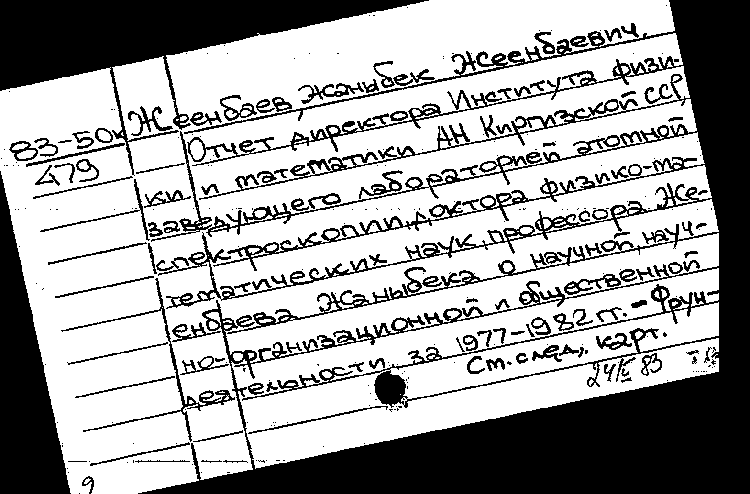 Жеенбаев, Жаныбек Жеенбаевич.
83-50к
479
Отчет директора Института физи-
ки и математики АН Киргизской ССР,
заведующего лабораторией атомной
спектроскопии, доктора физико-ма-
тематических наук, профессора Же-
енбаева Жаныбека о научной, науч-
но-организационной и общественной
деятельности за 1977-1982 гг. - Фрун-
См. след. карт.
83
9